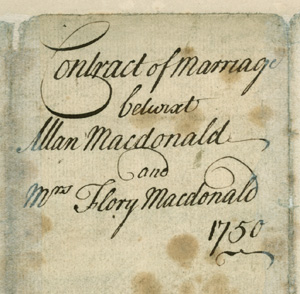 Contract of Marriage
betwixt
Allan Macdonald
and
Mrs Flory Macdonald
1750